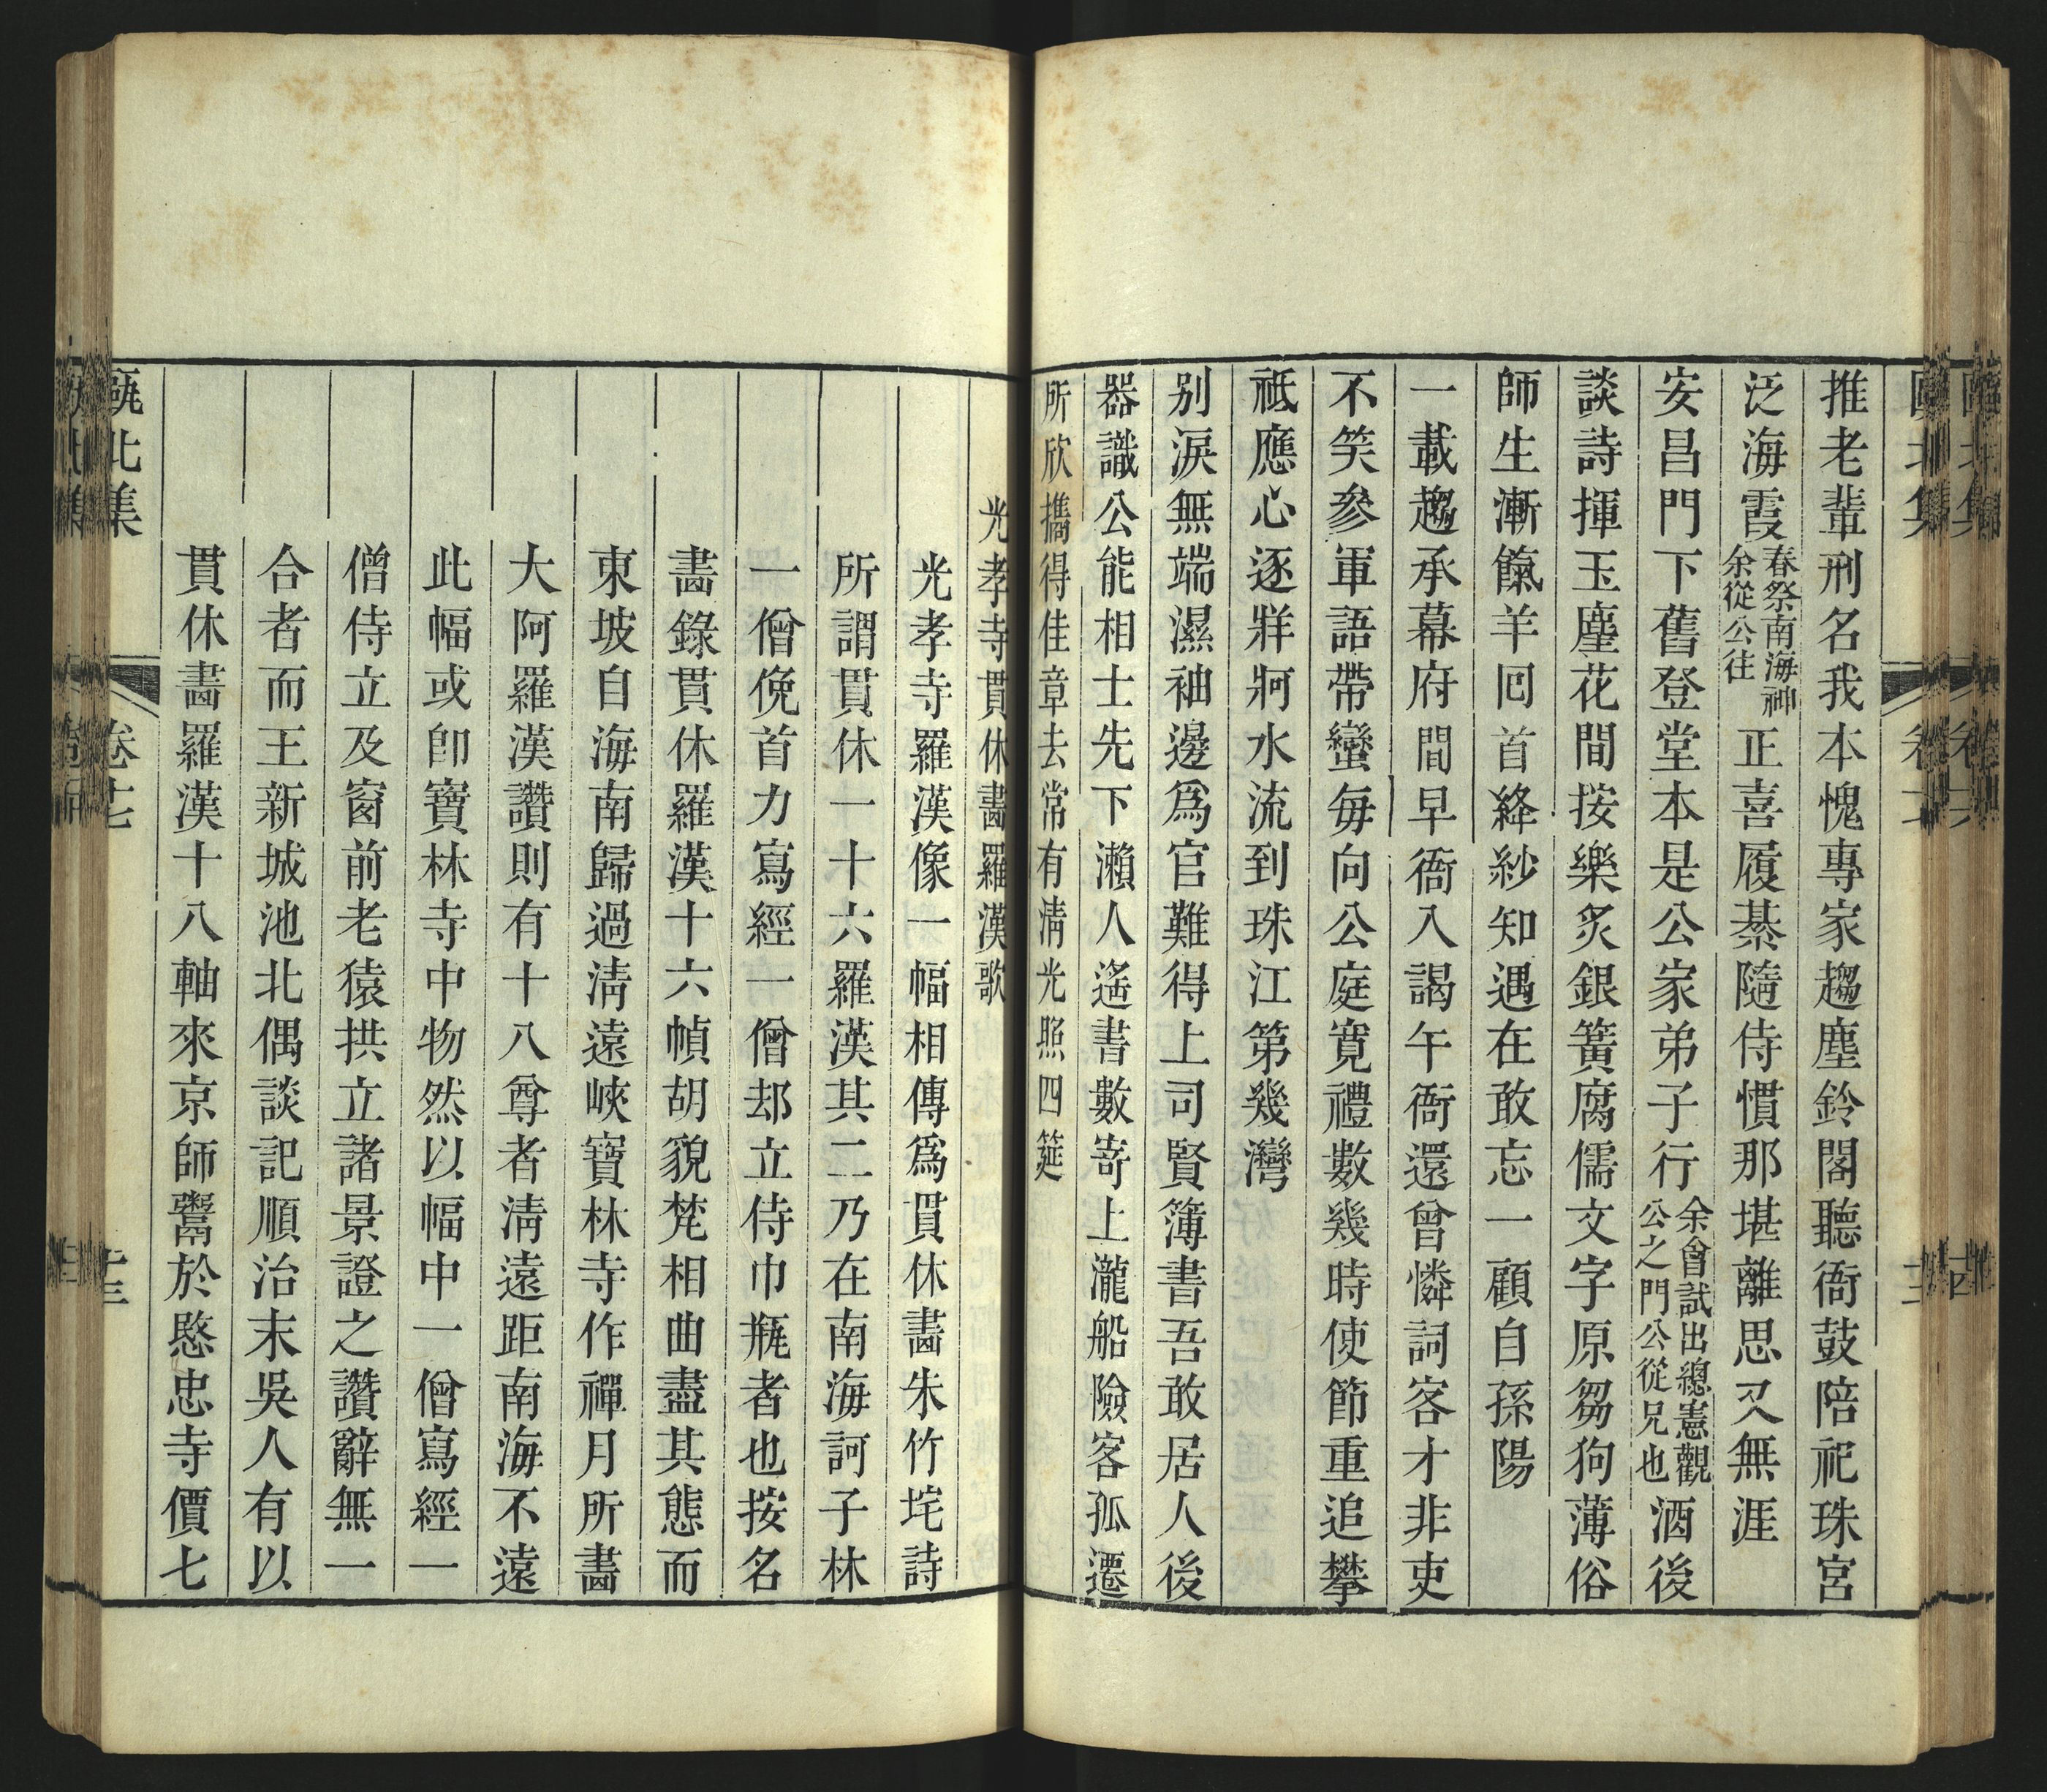 推老輩刑名我本愧專家趨塵鈴閣聽衙鼓陪祀珠宮
泛海霞春祭南海神余從公往正喜履綦隨侍慣那堪離思又無涯
安昌門下舊登堂本是公家弟子行余會試出總憲觀公之門公從兄也酒後
談詩揮玉麈花間按樂炙銀簧腐儒文字原芻狗薄俗
師生漸餼羊囘首絳紗知遇在敢忘一顧自孫陽
一載趨承幕府間早衙入謁午衙還曾憐詞客才非吏
不笑參軍語帶蠻每向公庭寛禮數幾時使節重追攀
祗應心逐牂牁水流到珠江第幾灣
别淚無端濕袖邊爲官難得上司賢簿書吾敢居人後
器識公能相士先下瀨人遙書數寄上瀧船險客孤遷
所欣攜得佳章去常有淸光照四筵
光孝寺貫休畵羅漢歌
光孝寺羅漢像一幅相傳爲貫休畵朱竹垞詩
所謂貫休一十六羅漢其二乃在南海訶子林
一僧俛首力寫經一僧却立侍巾瓶者也按名
畵錄貫休羅漢十六幀胡貌梵相曲盡其態而
東坡自海南歸過淸遠峽寶林寺作禪月所畵
大阿羅漢讚則有十八尊者淸遠距南海不遠
此幅或卽寶林寺中物然以幅中一僧寫經一
僧侍立及窗前老猿拱立諸景證之讚辭無一
合者而王新城池北偶談記順治末吳人有以
貫休畵羅漢十八軸來京師鬻於愍忠寺價七
甌北集 卷十七 十三